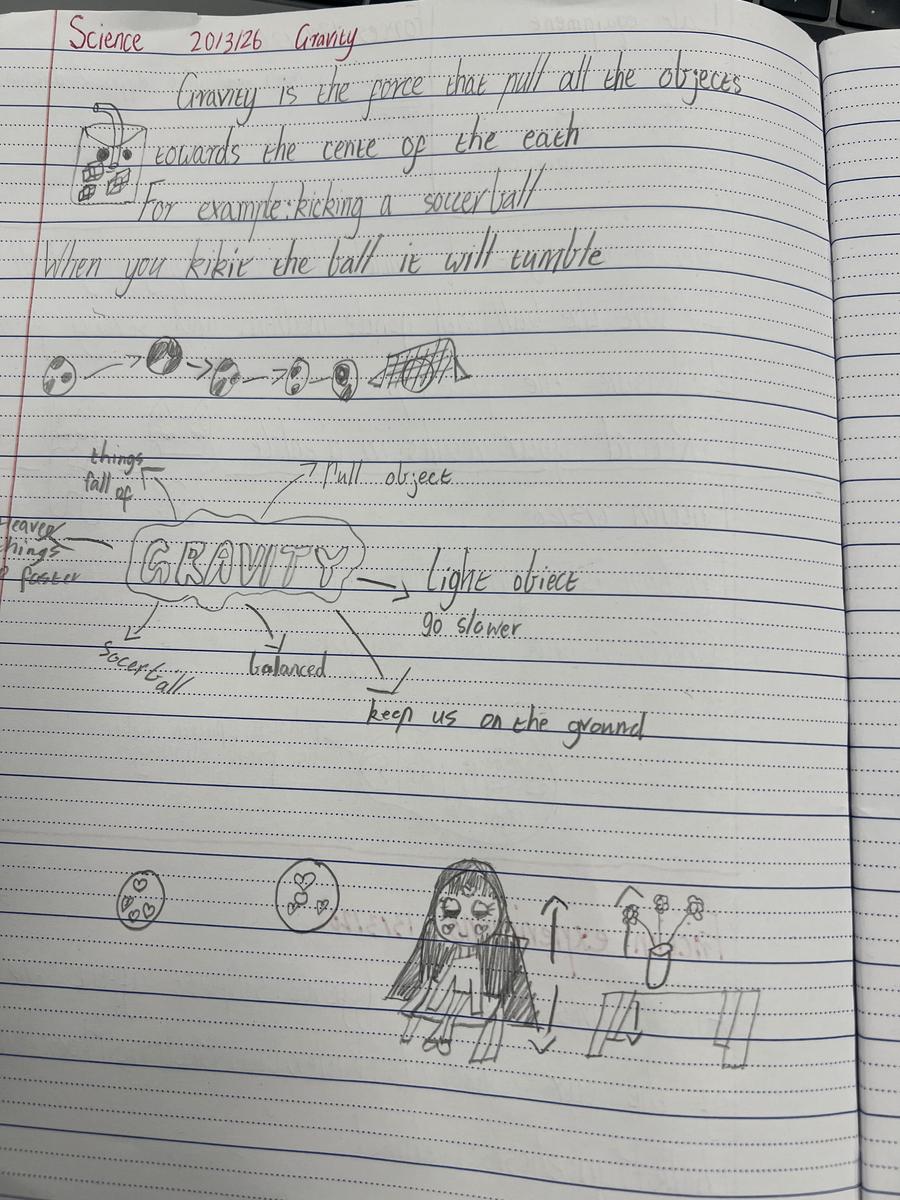 Science 20/3/26 Gravity
Gravity is the force that pull all the objects
towards the cente of the eath
For example: kicking a soccerball
When you kikit the ball it will tumble
things
fall of
Pull object
things
faster
GRAVITY
light object
go slower
socertball
balanced
keep us on the ground